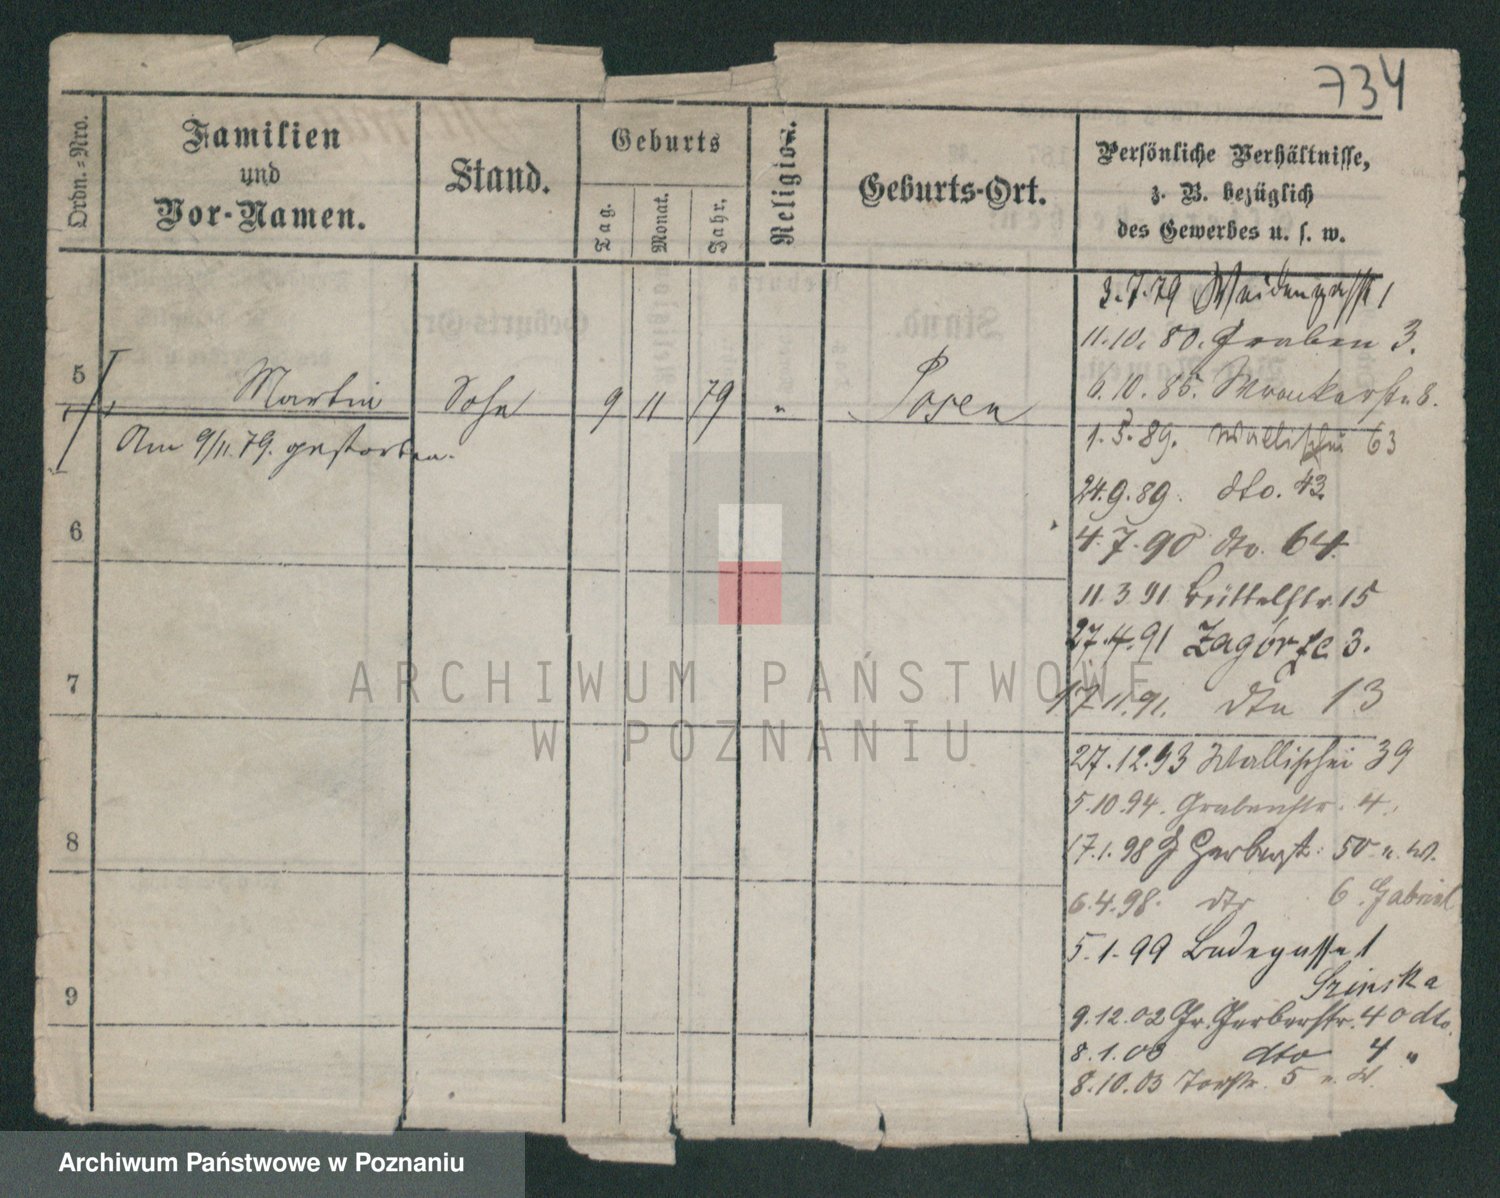 734
Ordn.-Nro.
Familien
und
Vor-Namen.
Stand.
Geburts
Tag.
Monat.
Jahr.
Religion.
Geburts-Ort.
Persönliche Verhältnisse,
z. B. bezüglich
des Gewerbes u. s. w.
5 Martin Sohn 9 11 79 " Posen
Am 9/11.79. gestorben.
6
7
8
9
3.7.79 Weidengasse 1
11.10.80. Graben 3.
6.10.85. Wronkerstr 8.
1.5.89. Wallischei 63
24.9.89. dto. 43.
4.7.90 dto. 64.
11.3.91 Büttelstr. 15
27.4.91 Zagórze 3.
17.11.91. dto 13
27.12.93 Wallischei 39
5.10.94. Grabenstr. 4.
17.1.98 Gr Gerberst. 50 u. W.
6.4.98. dto 6. Gabriel
5.1.99 Badegasse 1
Szinska
9.12.02 Gr. Gerberstr. 40 dto.
8.1.03 dto 4 "
8.10.03 Torstr. 5 u. W
ARCHIWUM PAŃSTWOWE
W POZNANIU
Archiwum Państwowe w Poznaniu